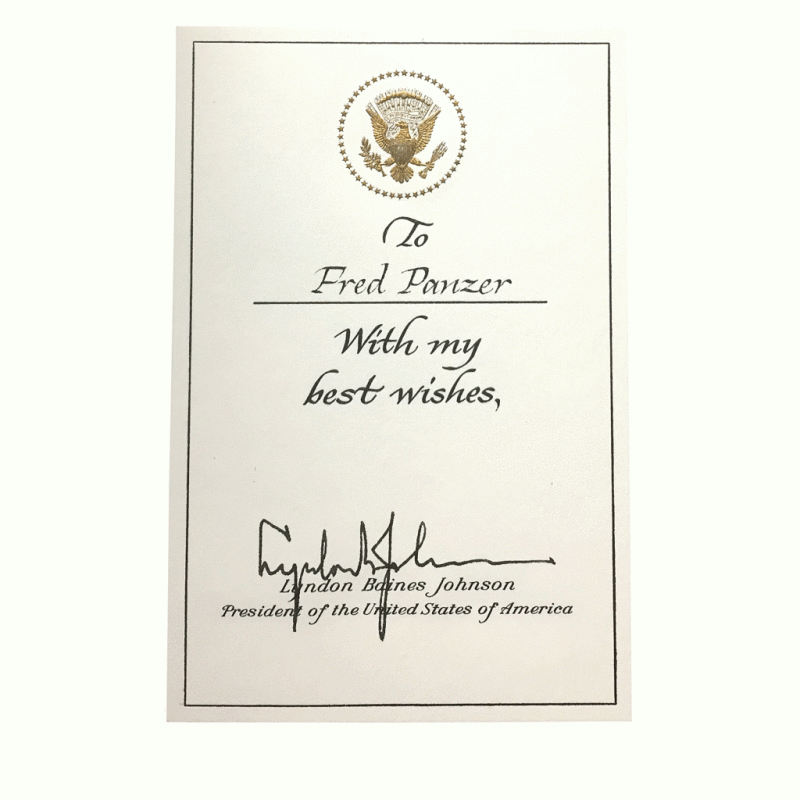 To
Fred Panzer
With my
best wishes,
Lyndon B Johnson
Lyndon Baines Johnson
President of the United States of America